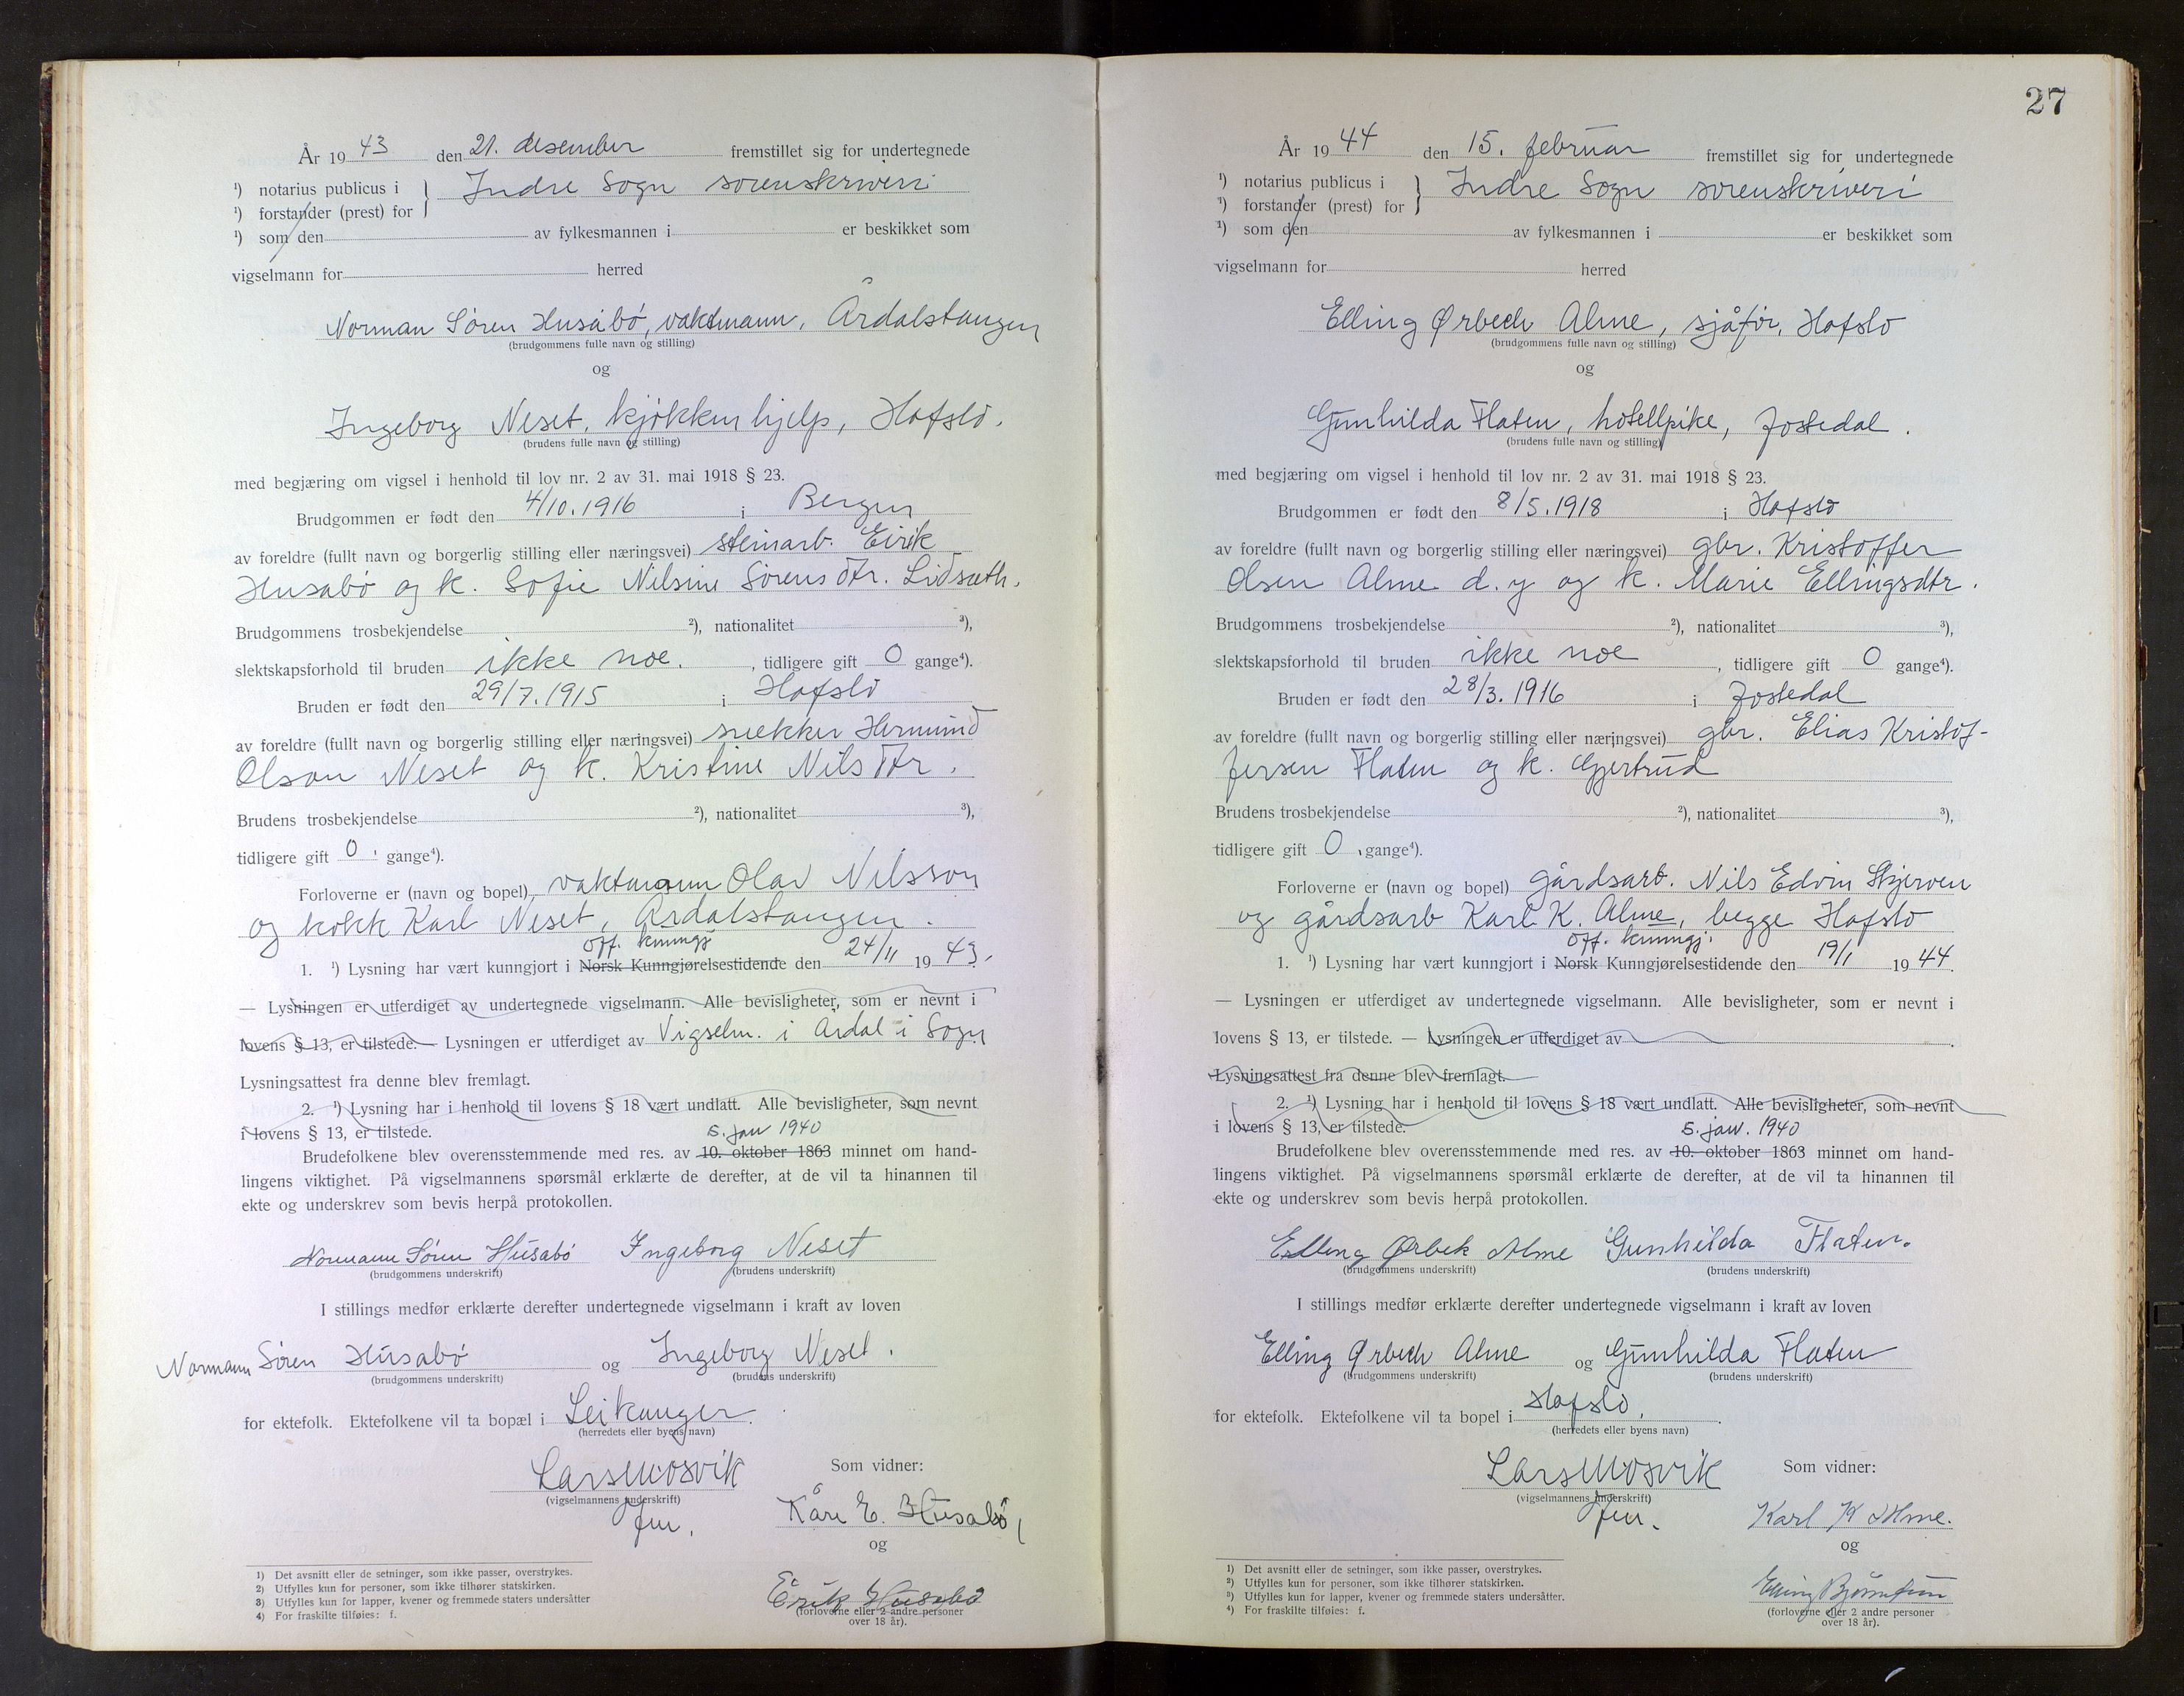 År 1943 den 21. desember fremstillet sig for undertegnede
¹) notarius publicus i } Indre Sogn sorenskriveri
¹) forstander (prest) for
¹) som den av fylkesmannen i er beskikket som
vigselmann for herred
Norman Sören Husabö, vaktmann, Årdalstangen
(brudgommens fulle navn og stilling)
og
Ingeborg Neset, kjökkenhjelp, Hafslo.
(brudens fulle navn og stilling)
med begjæring om vigsel i henhold til lov nr. 2 av 31. mai 1918 § 23.
Brudgommen er født den 4/10.1916 i Bergen
av foreldre (fullt navn og borgerlig stilling eller næringsvei) steinarb. Eirik
Husabö og k. Sofie Nilsine Sörensdtr. Lidsæth.
Brudgommens trosbekjendelse ²), nationalitet ³),
slektskapsforhold til bruden ikke noe. , tidligere gift 0 gange⁴).
Bruden er født den 29/7.1915 i Hafslo
av foreldre (fullt navn og borgerlig stilling eller næringsvei) snekker Hermund
Olson Neset og k. Kristine Nilsdtr.
Brudens trosbekjendelse ²), nationalitet ³),
tidligere gift 0 gange⁴).
Forloverne er (navn og bopel) vaktmann Olav Nilsson
og kokk Karl Neset, Årdalstangen.
off. kunngj.
1. ¹) Lysning har vært kunngjort i Norsk Kunngjørelsestidende den 24/11 1943.
— Lysningen er utferdiget av undertegnede vigselmann. Alle bevisligheter, som er nevnt i
lovens § 13, er tilstede. — Lysningen er utferdiget av Vigselm. i Årdal i Sogn
Lysningsattest fra denne blev fremlagt.
2. ¹) Lysning har i henhold til lovens § 18 vært undlatt. Alle bevisligheter, som nevnt
i lovens § 13, er tilstede.
5. jan 1940
Brudefolkene blev overensstemmende med res. av 10. oktober 1863 minnet om hand-
lingens viktighet. På vigselmannens spørsmål erklærte de derefter, at de vil ta hinannen til
ekte og underskrev som bevis herpå protokollen.
Normann Sören Husabö Ingeborg Neset
(brudgommens underskrift) (brudens underskrift)
I stillings medfør erklærte derefter undertegnede vigselmann i kraft av loven
Normann Sören Husabö og Ingeborg Neset.
(brudgommens underskrift) (brudens underskrift)
for ektefolk. Ektefolkene vil ta bopæl i Leikanger.
(herredets eller byens navn)
Lars Mosvik Som vidner:
(vigselmannens underskrift)
Kåre E. Husabö
og
Erik Husabö
(forloverne eller 2 andre personer
over 18 år).
1) Det avsnitt eller de setninger, som ikke passer, overstrykes.
2) Utfylles kun for personer, som ikke tilhører statskirken.
3) Utfylles kun for lapper, kvener og fremmede staters undersåtter
4) For fraskilte tilføies: f.
27
År 1944 den 15. februar fremstillet sig for undertegnede
¹) notarius publicus i } Indre Sogn sorenskriveri
¹) forstander (prest) for
¹) som den av fylkesmannen i er beskikket som
vigselmann for herred
Elling Ørbech Alme, sjåför, Hafslo
(brudgommens fulle navn og stilling)
og
Gunhilda Flaten, hotellpike, Jostedal.
(brudens fulle navn og stilling)
med begjæring om vigsel i henhold til lov nr. 2 av 31. mai 1918 § 23.
Brudgommen er født den 8/5.1918 i Hafslo
av foreldre (fullt navn og borgerlig stilling eller næringsvei) gbr. Kristoffer
Olsen Alme d. y og k. Marie Ellingsdtr.
Brudgommens trosbekjendelse ²), nationalitet ³),
slektskapsforhold til bruden ikke noe , tidligere gift 0 gange⁴).
Bruden er født den 28/3.1916 i Jostedal
av foreldre (fullt navn og borgerlig stilling eller næringsvei) gbr. Elias Kristof-
fersen Flaten og k. Gjertrud
Brudens trosbekjendelse ²), nationalitet ³),
tidligere gift 0 gange⁴).
Forloverne er (navn og bopel) gårdsarb. Nils Edvin Skjerven
og gårdsarb Karl K. Alme, begge Hafslo
off. kunngj.
1. ¹) Lysning har vært kunngjort i Norsk Kunngjørelsestidende den 19/1 1944.
— Lysningen er utferdiget av undertegnede vigselmann. Alle bevisligheter, som er nevnt i
lovens § 13, er tilstede. — Lysningen er utferdiget av
Lysningsattest fra denne blev fremlagt.
2. ¹) Lysning har i henhold til lovens § 18 vært undlatt. Alle bevisligheter, som nevnt
i lovens § 13, er tilstede.
5. jan. 1940
Brudefolkene blev overensstemmende med res. av 10. oktober 1863 minnet om hand-
lingens viktighet. På vigselmannens spørsmål erklærte de derefter, at de vil ta hinannen til
ekte og underskrev som bevis herpå protokollen.
Elling Ørbek Alme Gunhilda Flaten.
(brudgommens underskrift) (brudens underskrift)
I stillings medfør erklærte derefter undertegnede vigselmann i kraft av loven
Elling Ørbech Alme og Gunhilda Flaten
(brudgommens underskrift) (brudens underskrift)
for ektefolk. Ektefolkene vil ta bopel i Hafslo.
(herredets eller byens navn)
Lars Mosvik Som vidner:
(vigselmannens underskrift)
Karl K Alme.
og
Elling
(forloverne eller 2 andre personer
over 18 år).
¹) Det avsnitt eller de setninger, som ikke passer, overstrykes.
²) Utfylles kun for personer, som ikke tilhører statskirken.
³) Utfylles kun for lapper, kvener og fremmede staters undersåtter.
⁴) For fraskilte tilføies: f.